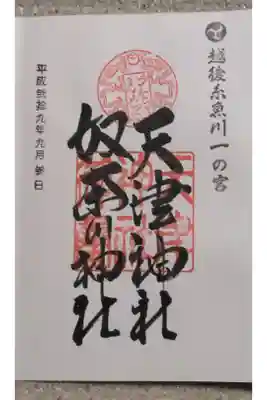 越後糸魚川一の宮
天津神社
奴奈川神社
平成弐拾九年九月参日